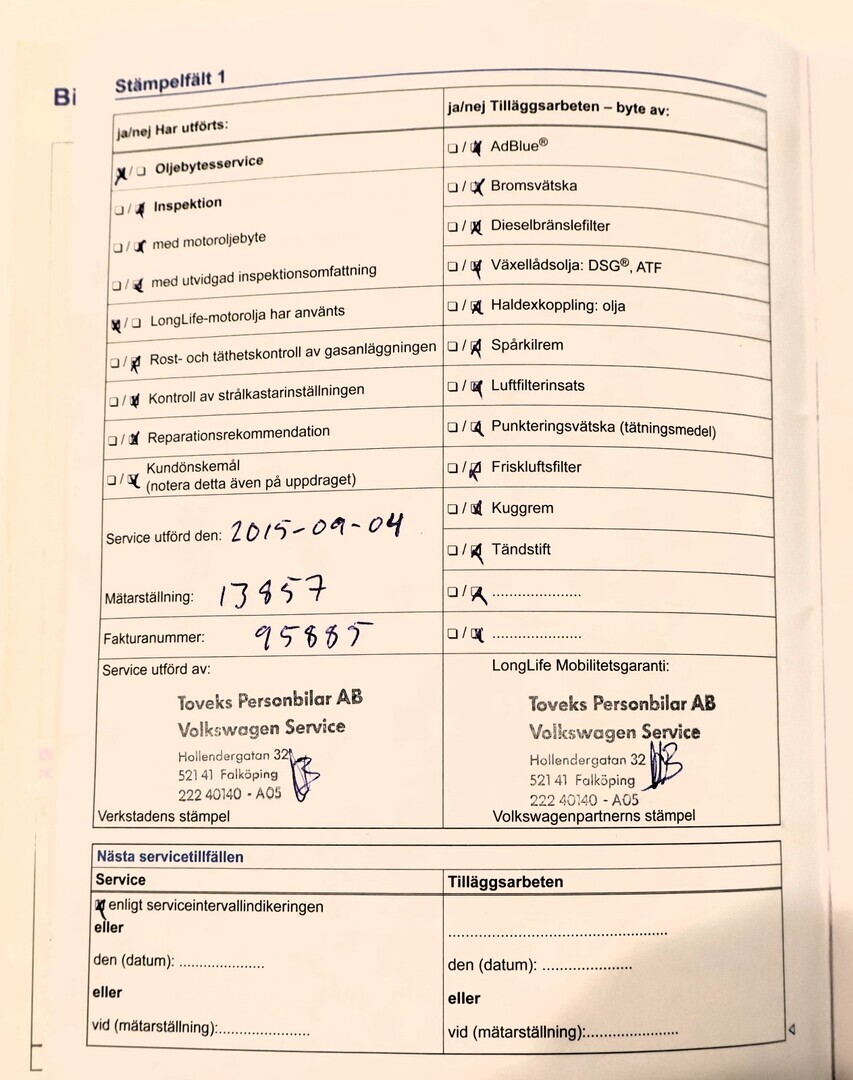 Bi
Stämpelfält 1
ja/nej Har utförts:
Oljebytesservice
Inspektion
med motoroljebyte
med utvidgad inspektionsomfattning
LongLife-motorolja har använts
Rost- och täthetskontroll av gasanläggningen
Kontroll av strålkastarinställningen
Reparationsrekommendation
Kundönskemål
(notera detta även på uppdraget)
Service utförd den: 2015-09-04
Mätarställning: 13857
Fakturanummer: 95885
Service utförd av:
Toveks Personbilar AB
Volkswagen Service
Hollendergatan 32
521 41 Falköping
222 40140 - A05
Verkstadens stämpel
ja/nej Tilläggsarbeten – byte av:
AdBlue®
Bromsvätska
Dieselbränslefilter
Växellådsolja: DSG®, ATF
Haldexkoppling: olja
Spårkilrem
Luftfilterinsats
Punkteringsvätska (tätningsmedel)
Friskluftsfilter
Kuggrem
Tändstift
LongLife Mobilitetsgaranti:
Toveks Personbilar AB
Volkswagen Service
Hollendergatan 32
521 41 Falköping
222 40140 - A05
Volkswagenpartnerns stämpel
Nästa servicetillfällen
Service
enligt serviceintervallindikeringen
eller
den (datum): ....................
eller
vid (mätarställning):.....................
Tilläggsarbeten
den (datum): ....................
eller
vid (mätarställning):.....................